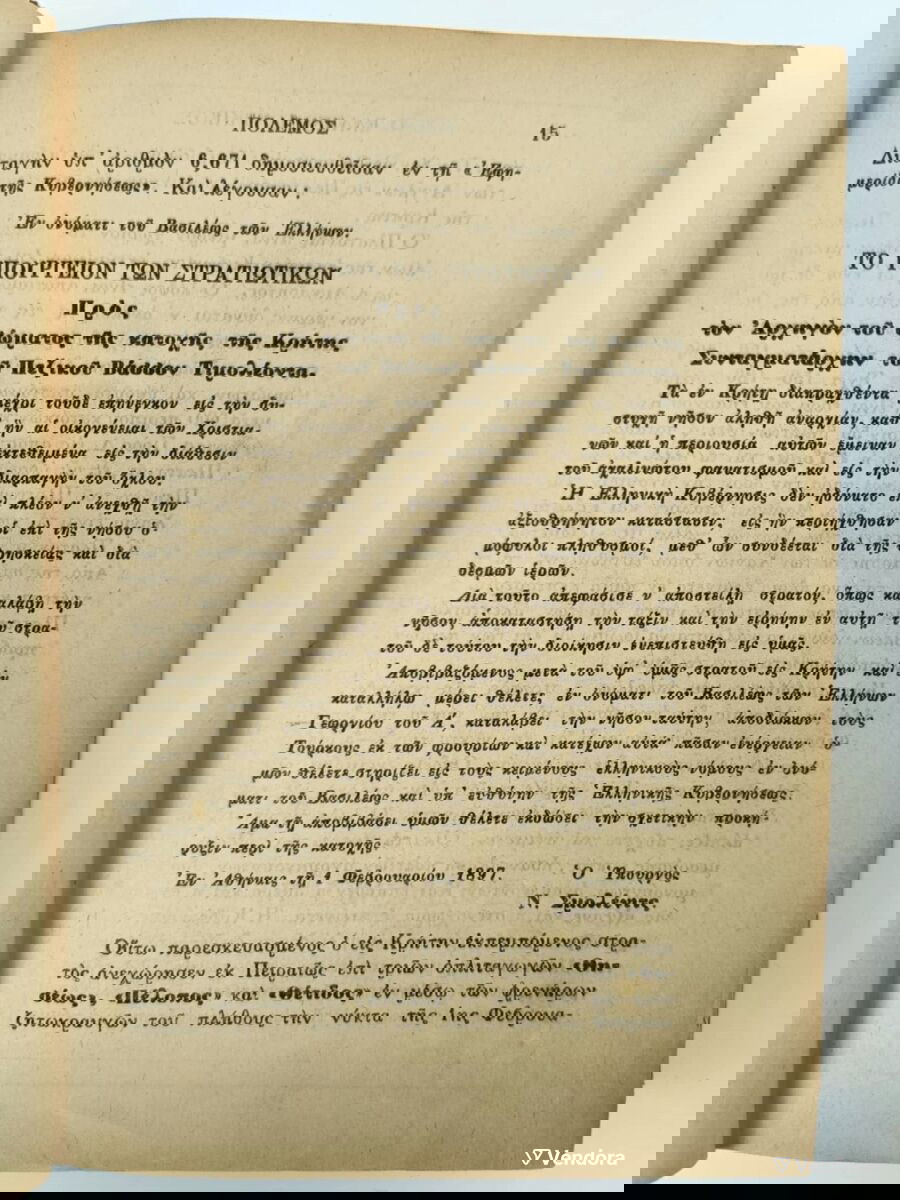 ΠΟΛΕΜΟΣ 15
Διαταγὴν ὑπ' ἀριθμὸν 6,671 δημοσιευθεῖσαν ἐν τῇ «Ἐφη-
μερίδι τῆς Κυβερνήσεως». Καὶ λέγουσαν :
Ἐν ὀνόματι τοῦ Βασιλέως τῶν Ἑλλήνων.
ΤΟ ΥΠΟΥΡΓΕΙΟΝ ΤΩΝ ΣΤΡΑΤΙΩΤΙΚΩΝ
Πρὸς
τὸν Ἀρχηγὸν τοῦ σώματος τῆς κατοχῆς τῆς Κρήτης
Συνταγματάρχην τοῦ Πεζικοῦ Βάσσον Τιμολέοντα.
Τὰ ἐν Κρήτῃ διαπραχθέντα μέχρι τοῦδε ἐπήνεγκον εἰς τὴν δυ-
στυχῆ νῆσον ἀληθῆ ἀναρχίαν, καθ' ἣν αἱ οἰκογένειαι τῶν Χριστια-
νῶν καὶ ἡ περιουσία αὐτῶν ἔμειναν ἐκτεθειμένα εἰς τὴν διάθεσιν
τοῦ ἀχαλινώτου φανατισμοῦ καὶ εἰς τὴν διαρπαγὴν τοῦ ὄχλου.
Ἡ Ἑλληνικὴ Κυβέρνησις δὲν ἠδύνατο ἐπὶ πλέον ν' ἀνεχθῇ τὴν
ἀξιοθρήνητον κατάστασιν, εἰς ἣν περιήχθησαν οἱ ἐπὶ τῆς νήσου ὁ-
μόφυλοι πληθυσμοί, μεθ' ὧν συνδέεται διὰ τῆς θρησκείας καὶ διὰ
δεσμῶν ἱερῶν.
Διὰ τοῦτο ἀπεφάσισε ν' ἀποστείλῃ στρατόν, ὅπως καταλάβῃ τὴν
νῆσον, ἀποκαταστήσῃ τὴν τάξιν καὶ τὴν εἰρήνην ἐν αὐτῇ τοῦ στρα-
τοῦ δὲ τούτου τὴν διοίκησιν ἐνεπιστεύθη εἰς ὑμᾶς.
Ἀποβιβαζόμενος μετὰ τοῦ ὑφ' ὑμᾶς στρατοῦ εἰς Κρήτην καὶ ἐν
καταλλήλῳ μέρει θέλετε, ἐν ὀνόματι τοῦ Βασιλέως τῶν Ἑλλήνων
Γεωργίου τοῦ Α', καταλάβει τὴν νῆσον ταύτην, ἀποδιώκων τοὺς
Τούρκους ἐκ τῶν φρουρίων καὶ κατέχων αὐτά· πᾶσαν ἐνέργειαν ὑ-
μῶν θέλετε στηρίξει εἰς τοὺς κειμένους ἑλληνικοὺς νόμους ἐν ὀνό-
ματι τοῦ Βασιλέως καὶ ὑπ' εὐθύνην τῆς Ἑλληνικῆς Κυβερνήσεως.
Ἅμα τῇ ἀποβιβάσει ὑμῶν θέλετε ἐκδώσει τὴν σχετικὴν προκή-
ρυξιν περὶ τῆς κατοχῆς.
Ἐν Ἀθήναις τῇ 1 Φεβρουαρίου 1897. Ὁ Ὑπουργὸς
Ν. Σμολένης
Οὕτω παρεσκευασμένος ὁ εἰς Κρήτην ἐκπεμπόμενος στρα-
τὸς ἀνεχώρησεν ἐκ Πειραιῶς ἐπὶ τριῶν ὁπλιταγωγῶν «Θη-
σέως», «Πέλοπος» καὶ «Θέτιδος» ἐν μέσῳ τῶν φρενήρων
ζητωκραυγῶν τοῦ πλήθους τὴν νύκτα τῆς 1ης Φεβρουα-
Vendora